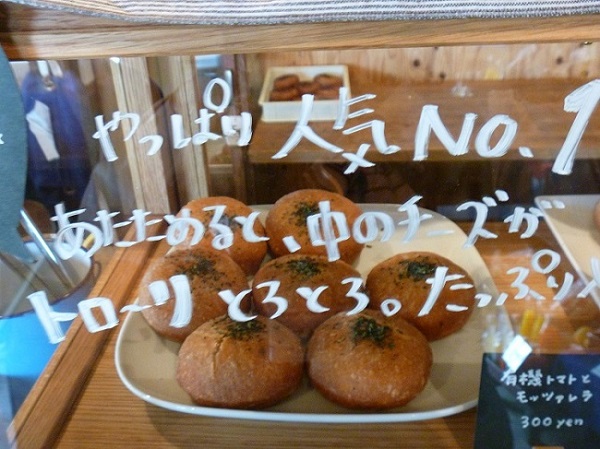 やっぱり人気No.1
あたためると、中のチーズが
トロ〜リとろとろ。たっぷり
有機トマトと
モッツァレラ
300yen